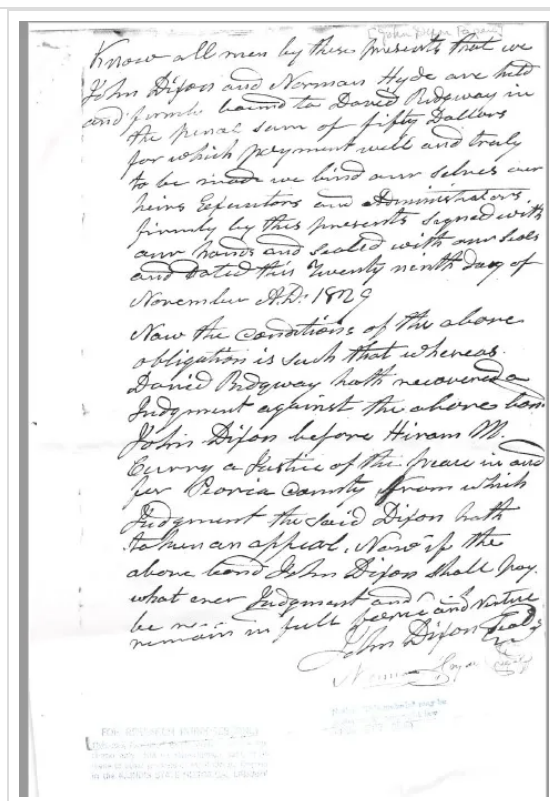 [John Dixon Papers]
Know all men by these presents that we
John Dixon and Norman Hyde are held
and firmly bound to David Ridgway in
the penal sum of fifty Dollars
for which payment well and truly
to be made we bind our selves our
heirs Executors and Administrators
firmly by this presents signed with
our hands and sealed with our seals
and Dated this Twenty ninth day of
November A.D. 1829
Now the Conditions of the above
obligation is such that whereas
David Ridgway hath recovered a
Judgment against the above
John Dixon before Hiram M.
Curry a Justice of the peace in and
for Peoria County from which
Judgment the said Dixon hath
taken an appeal. Now if the
above John Dixon shall pay
what ever Judgment and
be
remain in full force and virtue
John Dixon Seal
Norman Hyde
FOR RESEARCH PURPOSES ONLY